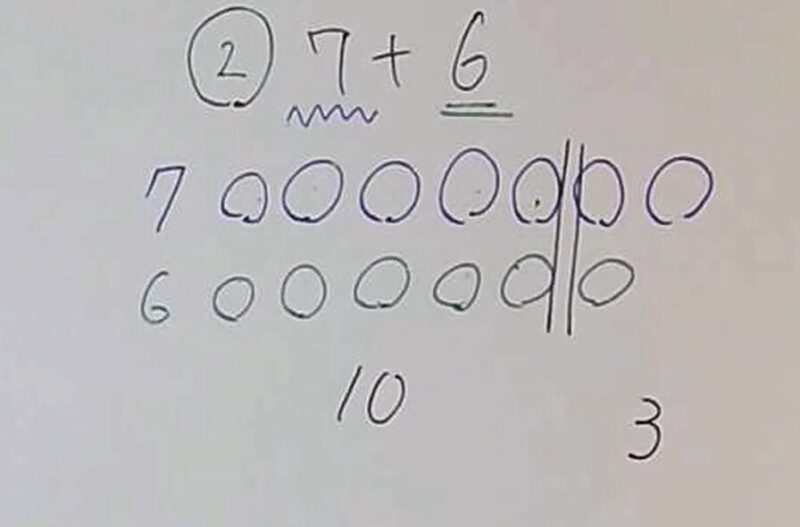 ② 7 + 6
7 ○○○○○○○
6 ○○○○○○
10 3